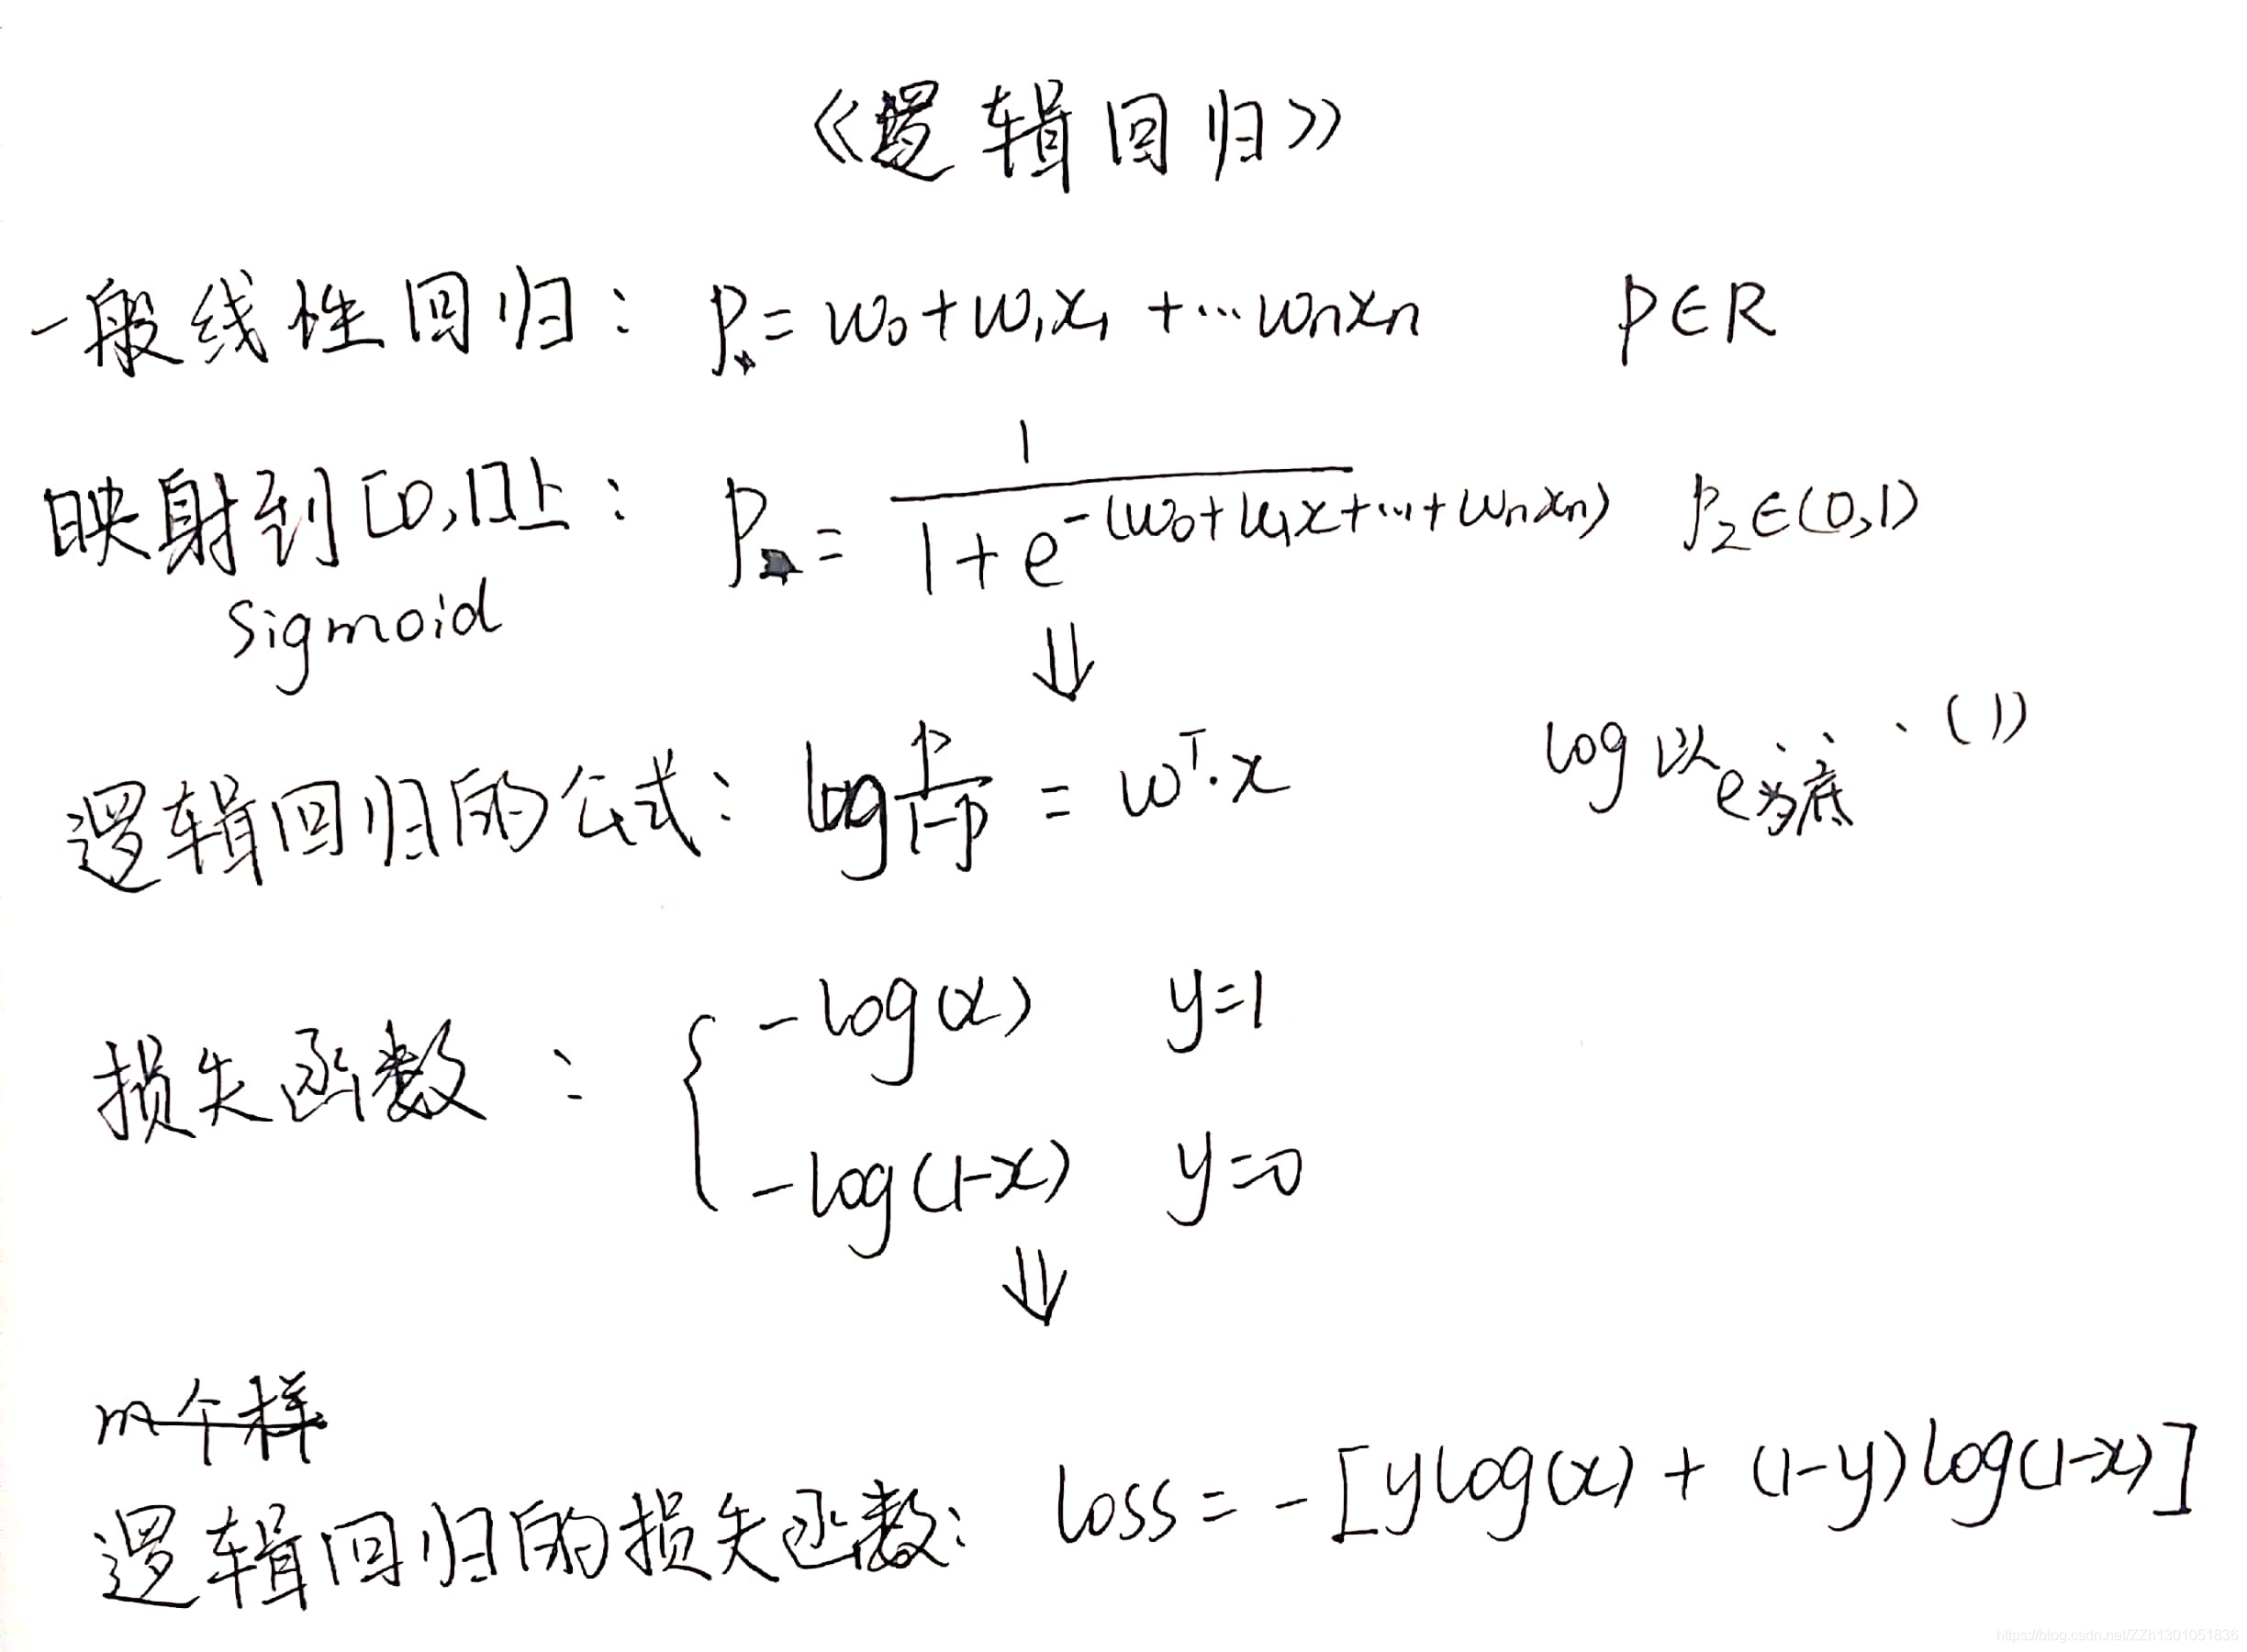 《逻辑回归》
一般线性回归: P = w₀+w₁x₁ +…wₙxₙ P∈R
映射到[0,1]上: P = 1/(1+e^-(w₀+w₁x+…+wₙxₙ)) P₂∈(0,1)
Sigmoid
⇓
逻辑回归的公式: log p/(1-p) = wᵀ·x log以e为底 · (1)
损失函数 : { -log(x) y=1
-log(1-x) y=0
⇓
m个样
逻辑回归的损失函数: loss = -[ylog(x) + (1-y)log(1-x)]
https://blog.csdn.net/ZZh1301051836